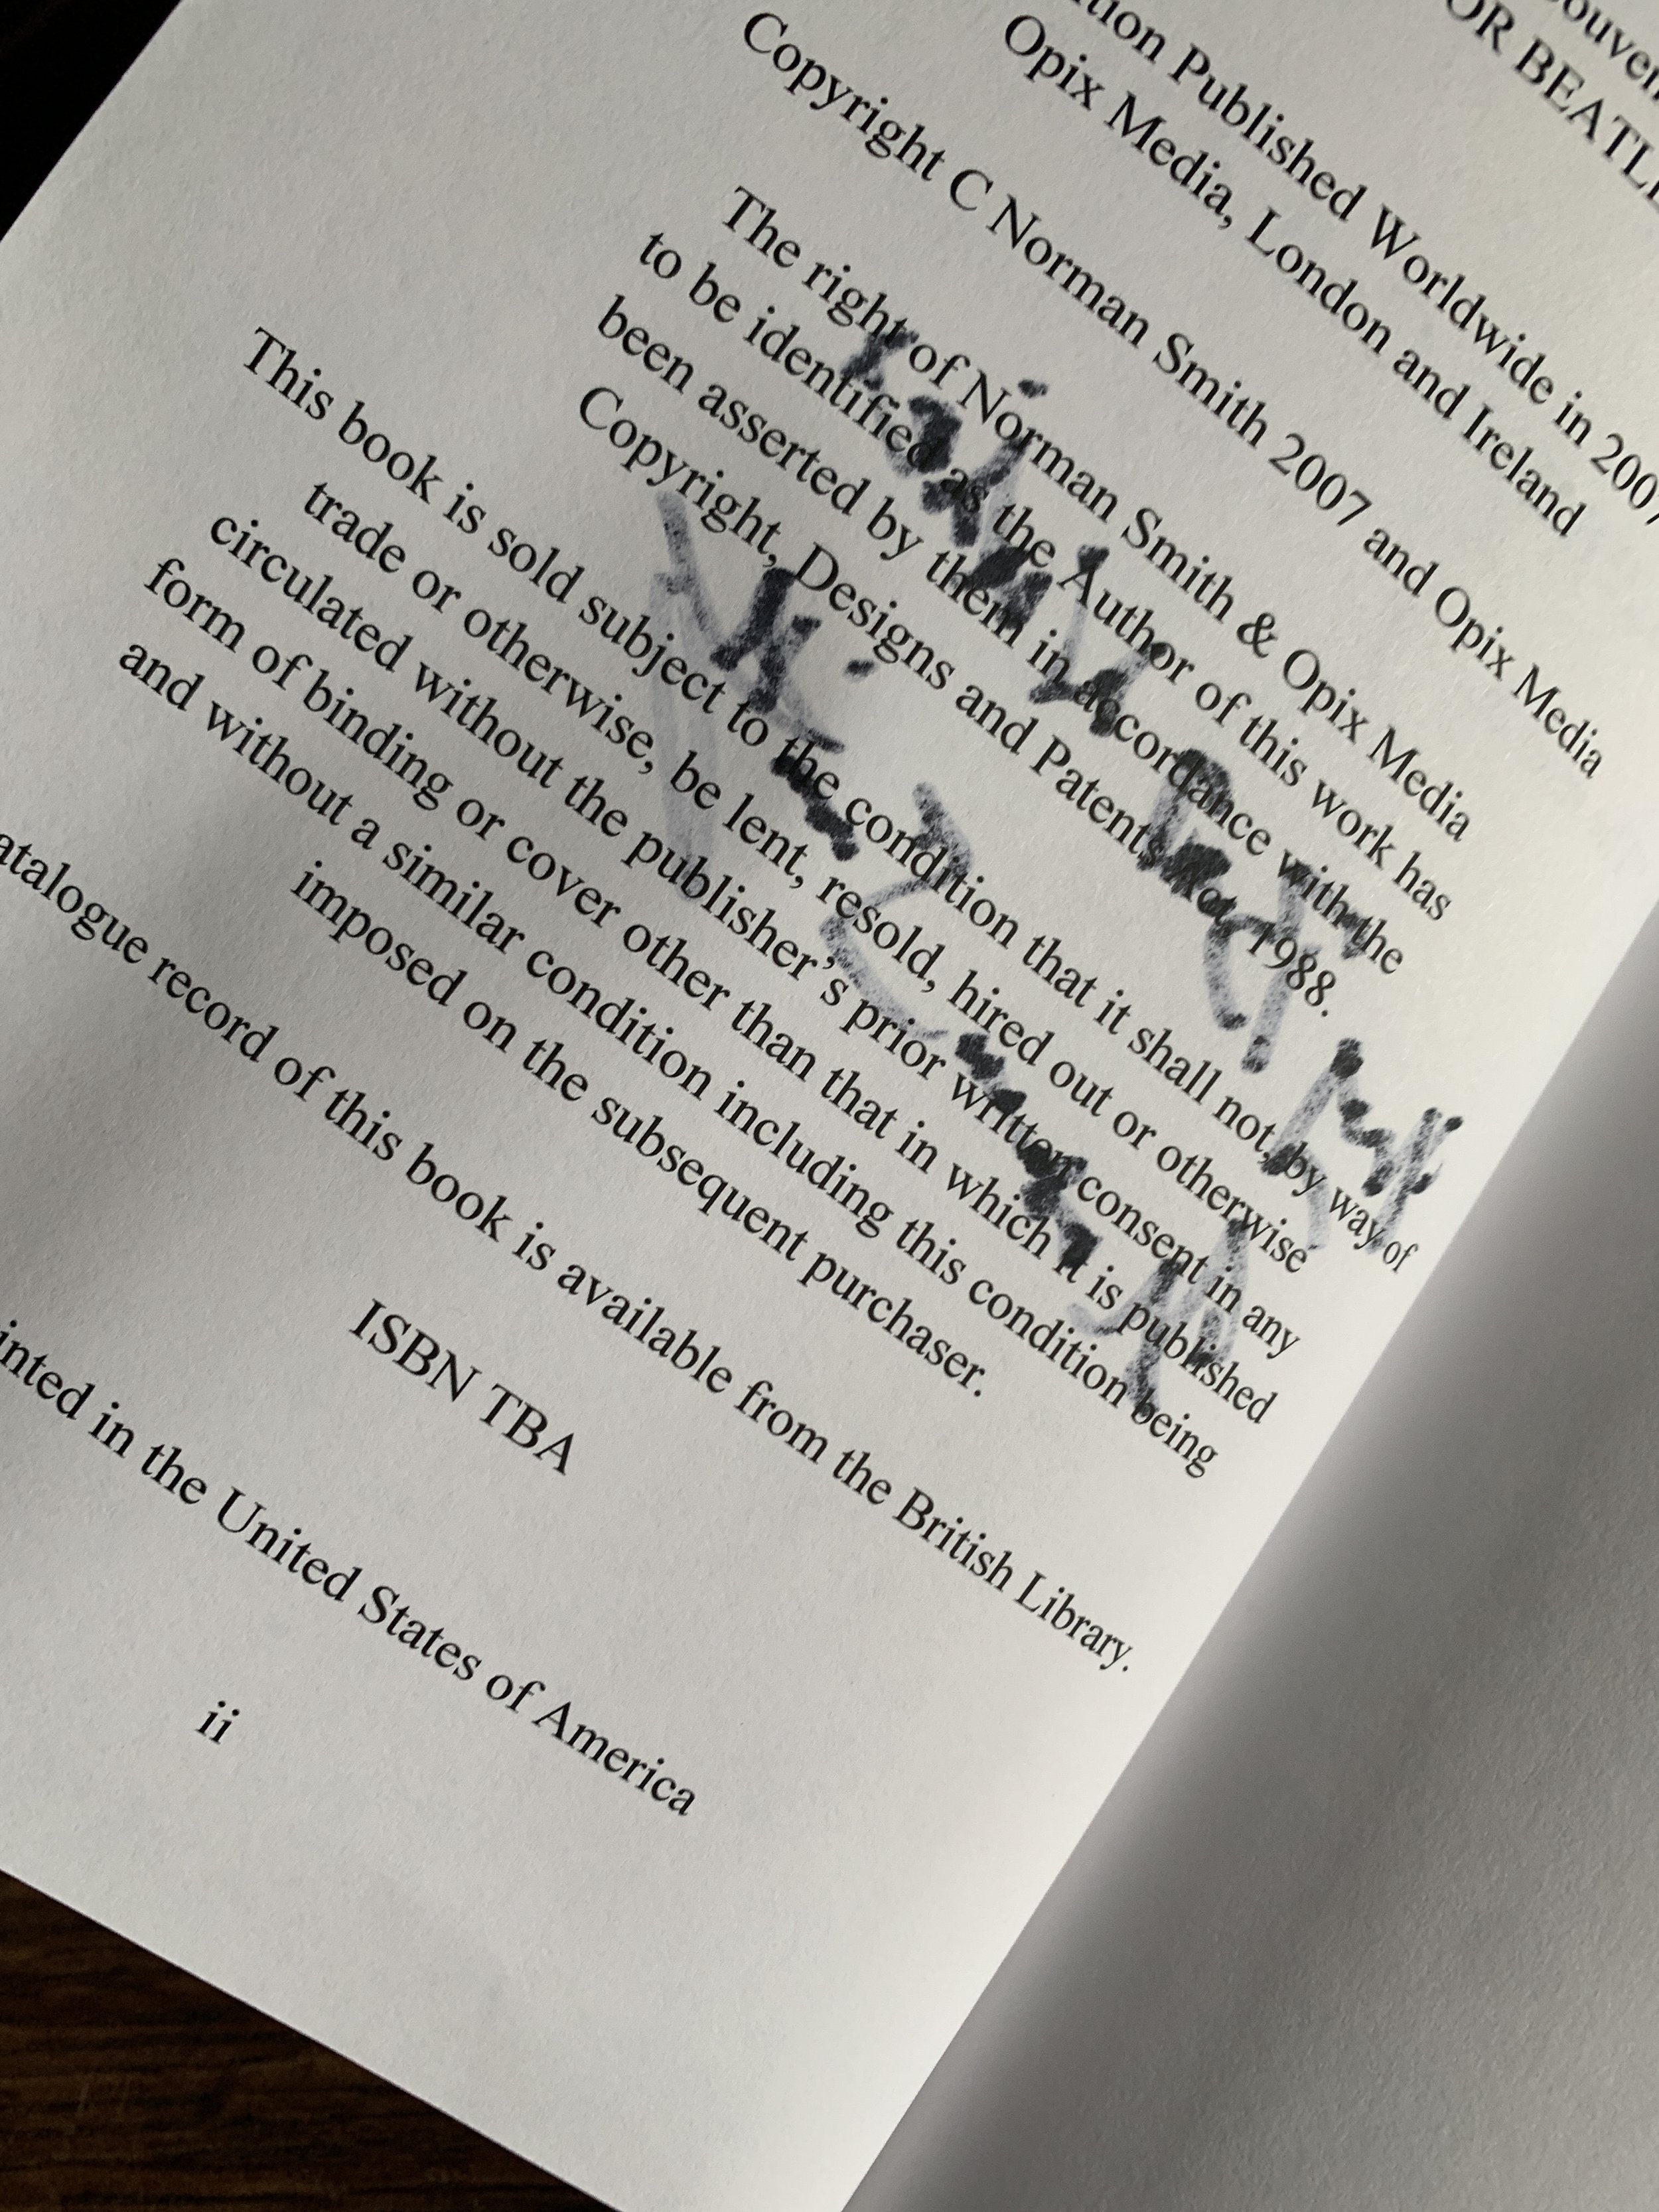 ouven
OR BEATL
tion Published Worldwide in 2007
Opix Media, London and Ireland
Copyright C Norman Smith 2007 and Opix Media
The right of Norman Smith & Opix Media
to be identified as the Author of this work has
been asserted by them in accordance with the
Copyright, Designs and Patents Act 1988.
This book is sold subject to the condition that it shall not, by way of
trade or otherwise, be lent, resold, hired out or otherwise
circulated without the publisher's prior written consent in any
form of binding or cover other than that in which it is published
and without a similar condition including this condition being
imposed on the subsequent purchaser.
atalogue record of this book is available from the British Library.
ISBN TBA
inted in the United States of America
ii